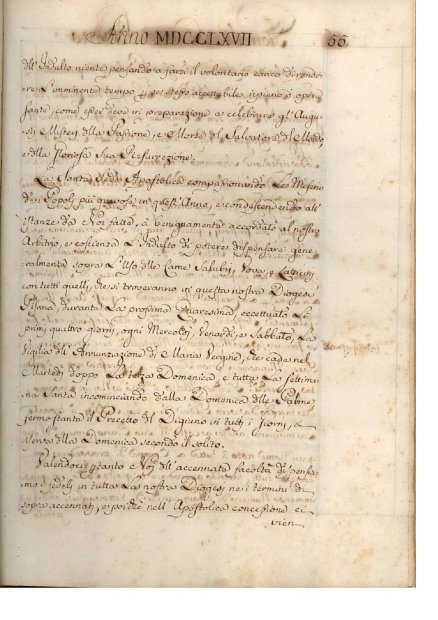 Anno MDCCLXVII 55
dell' Indulto niente pensando a farsi il volontario carico di rende-
re l'imminente tempo per se stesso accettabile ripieno d'opere
sante, come esser deve in preparazione a celebrare gl' Augu-
sti Misteri della Passione, e Morte del Salvatore del Mondo,
e della Gloriosa Sua Resurrezione.
La Santa Sede Apostolica compassionando le Miserie
de' Popoli più gravose in quest' Anno, e condescendendo all'
istanze da Noi fatte, à benignamente accordato al nostro
Arbitrio, e coscienza L'Indulto di potere dispensare gene-
ralmente sopra L'Uso delle Carne Salubri, Uova, e Latticinj
con tutti quelli, che si troveranno in questa nostra Diogesi
durante La prossima Quaresima, eccettuato Le
primi quattro giorni, ogni Mercoldì, Venardì, e Sabbato, La
Vigilia dell' Annunziazione di Maria Vergine, che cade nel
Martedì doppo La terza Domenica, e tutta La Settima-
na Santa incominciando dalla Domenica delle Palme
fermo stante il Precetto del Digiuno in tutti i Giorni, a
riserva della Domenica secondo il solito.
Valendoci pertanto e Noi dell' accennata facoltà dispensa-
mo i fedeli in tutta La nostra Diogesi nei termini di
sopra accennati, e poiche nell' Apostolica concessione ci
vien